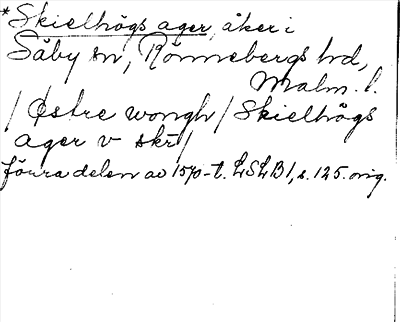 *Skielhögs ager, åker i
Säby sn, Rönnebergs hd,
Malm. l.
/ Østre wongh / Skielhögs
ager v skr/
förra delen av 1570-t. LSLB 1, s. 125. orig.